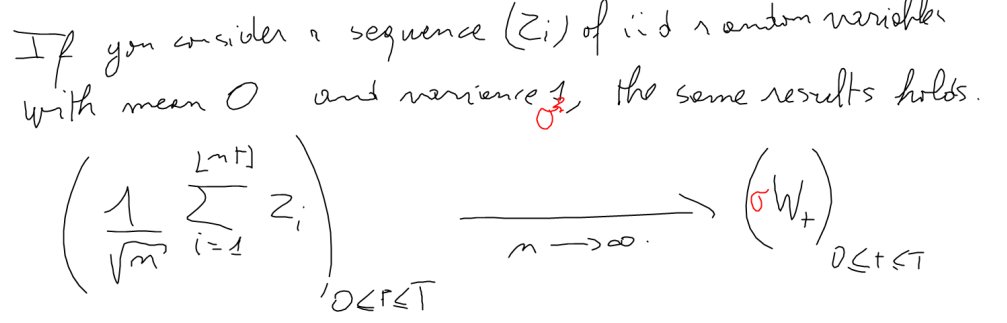 If you consider a sequence (Zi) of iid random variables
with mean 0 and varience 1, σ², the same results holds.
( 1/√n ∑_{i=1}^{⌊nt⌋} Z_i )_{0≤t≤T} ⟶_{n→∞.} (σW_t)_{0≤t≤T}